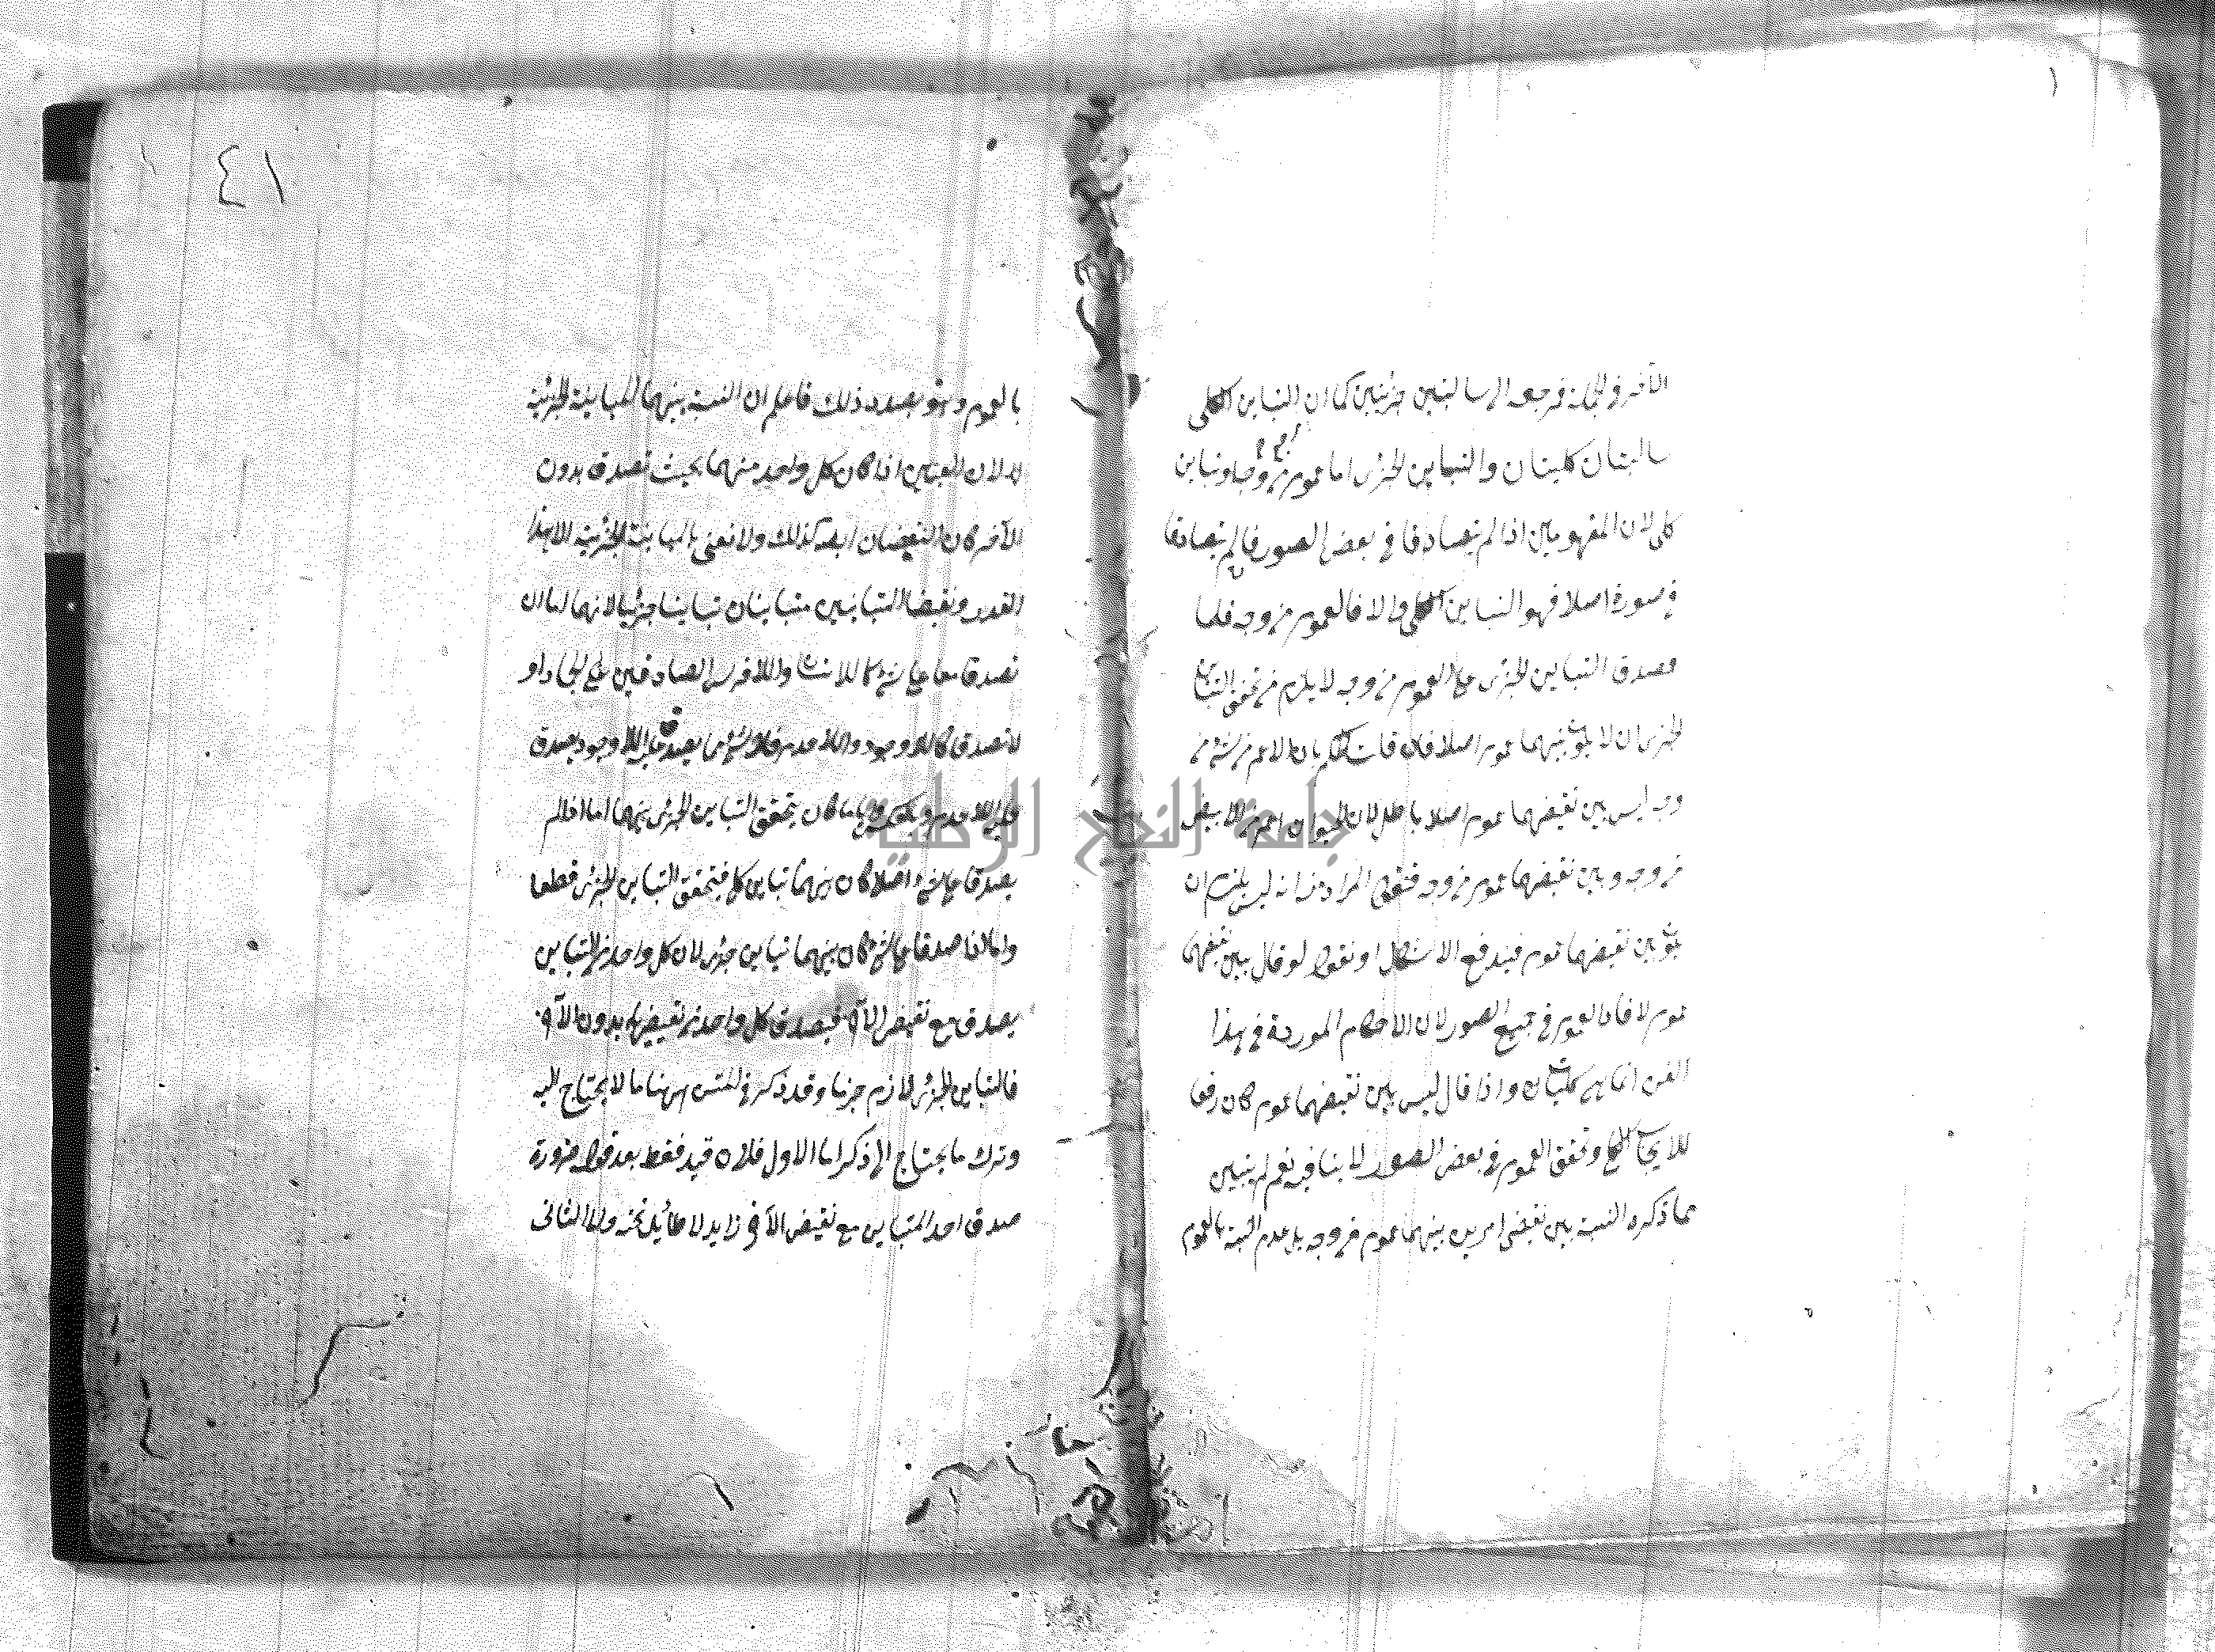 الآخر في الجملة فمرجعه الى سالبتين جزئيتين كما ان التباين الكلى
سالبتان كليتان والتباين الجزئى اما عموم من وجه او تباين
كلى لان المفهومين اذا لم يتصادقا في بعض الصور فان لم يتصادقا
في صورة اصلا فهو التباين الكلى والا فالعموم من وجه فلما
صدق التباين الجزئى على العموم من وجه لا يلزم من تحقق التباين
الجزئى ان لا يكون بينهما عموم اصلا فان قلت الحكم بان الاعم من شئ من
وجه ليس بين نقيضهما عموم اصلا باطل لان الحيوان اعم من الابيض
من وجه وبين نقيضهما عموم من وجه فنقول المراد منه انه ليس يلزم ان
يكون بين نقيضهما عموم فيندفع الاشكال او نقول لو قال بين نقيضهما
عموم لافاد العموم في جميع الصور لان الاحكام الموردة في هذا
الفن انما هى كليات واذا قال ليس بين نقيضهما عموم كان رفعا
للايجاب الكلى وتحقق العموم في بعض الصور لا ينافيه نعم لم يتبين
مما ذكره النسبة بين نقيضى امرين بينهما عموم من وجه بل عدم النسبة بالعموم
٤١
بالعموم وهو بصدد ذلك فاعلم ان النسبة بينهما المباينة الجزئية
لان العينين اذا كان كل واحد منهما بحيث تصدق بدون
الآخر كان النقيضان ايضا كذلك ولا نعنى بالمباينة الجزئية الا هذا
القدر ونقيضا المتباينين متباينان تباينا جزئيا لانهما اما ان
تصدقا معا على شئ كاللاانسان واللافرس الصادقين على الجماد او
لا تصدقا كاللاوجود واللاعدم فلا شئ مما يصدق عليه اللاوجود يصدق
عليه اللاعدم وبالعكس وايا ما كان يتحقق التباين الجزئى بينهما اما اذا لم
يصدقا على شئ اصلا كان بينهما تباين كلى فيتحقق التباين الجزئى قطعا
واما اذا صدقا على شئ كان بينهما تباين جزئى لان كل واحد من المتباينين
يصدق مع نقيض الآخر فيصدق كل واحد من نقيضهما بدون الآخر
فالتباين الجزئى لازم جزما وقد ذكر في المتن ههنا ما لا يحتاج اليه
وترك ما يحتاج الى ذكره اما الاول فلان قيد فقط بعد قوله ضرورة
صدق احد المتباينين مع نقيض الآخر زايد لا طائل تحته واما الثانى
جامعة النجاح الوطنية